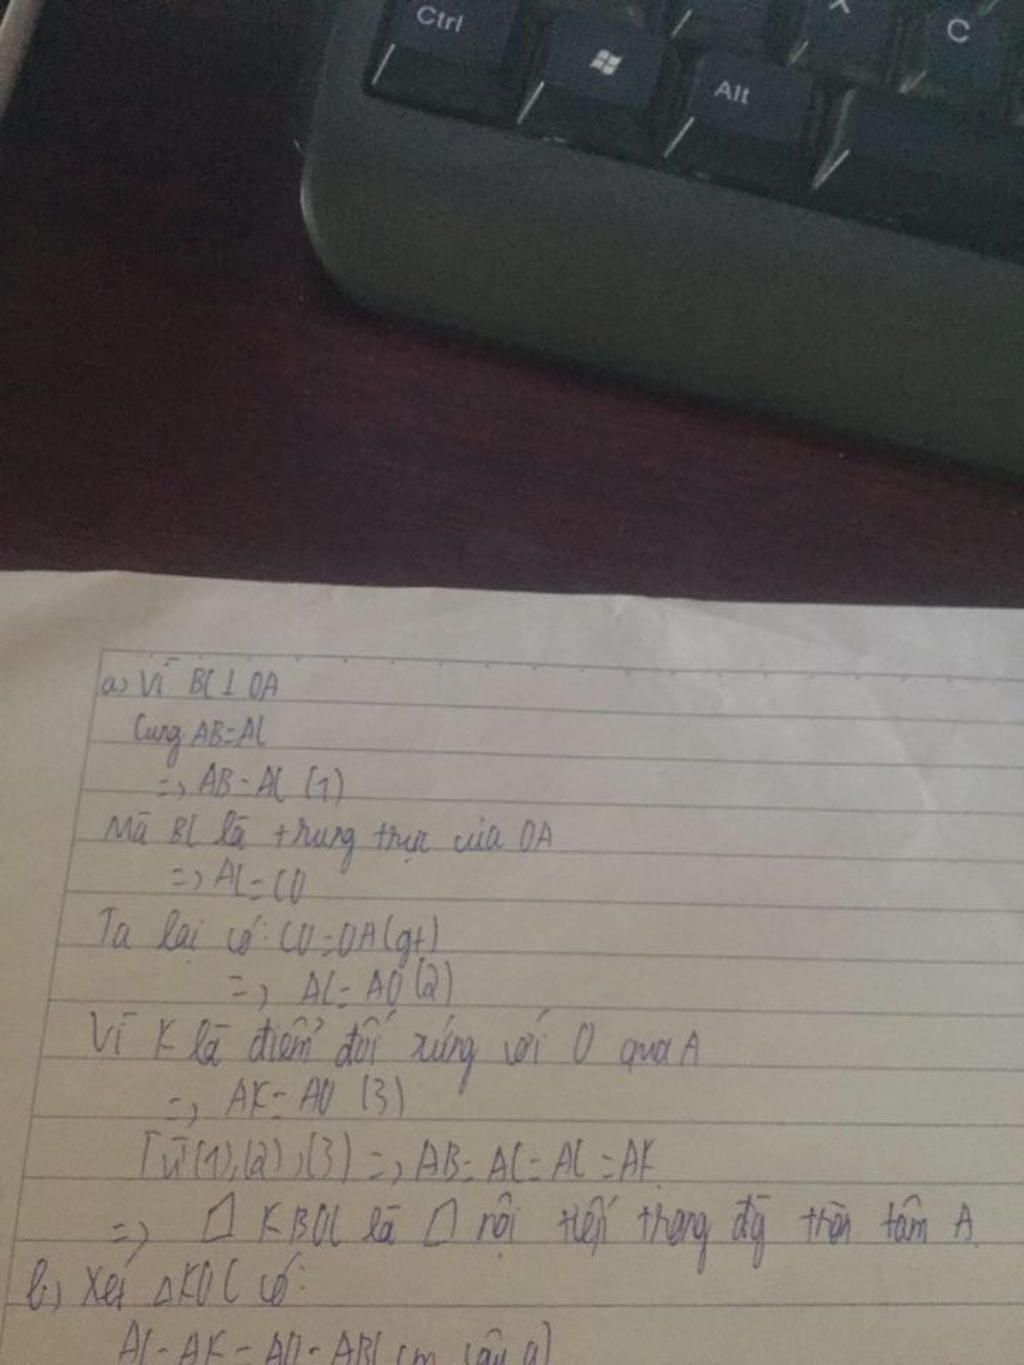 Ctrl
Alt
X
C
a) Vì BC ⊥ OA
Cung AB=AC
=> AB=AC (1)
Mà BC là trung trực của OA
=> AC=CO
Ta lại có: CO=OA(gt)
=> AC=AO (2)
Vì K là điểm đối xứng với O qua A
=> AK=AO (3)
Từ (1),(2),(3) => AB=AC=AC=AK
=> □ KBOC là □ nội tiếp trong đg tròn tâm A.
b) Xét △KOC có:
AC=AK=AO=AB(cm câu a)